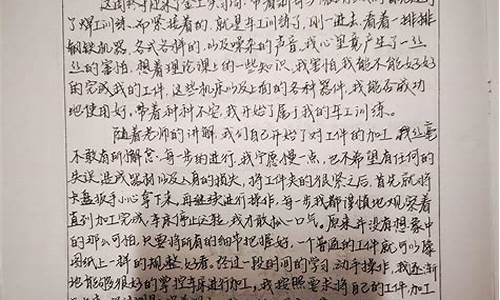 这周终于迎来了金工实习周,带着
了焊工训练,而紧接着的,就是车工训练了,刚一进去,看着一排排
钢铁机器,各式各样的,以及嘈杂的声音,我心里竟产生了一丝
丝的害怕,想着理论课上的一些知识,我害怕我能不能好好
的完成我的工件,这些机床以及上面的各种器件,我能否成功
地使用好,带着种种不安,我开始了属于我的车工训练。
随着老师的讲解,我们自己开始了对工件的加工,我丝毫
不敢有所懈怠,每一步的进行,我宁愿慢一点,也不希望有任何的
失误,造成器材以及人身的损失,将工件夹的很紧之后,首先就将
卡盘扳手小心拿下来,再继续进行操作,每一步我都谨慎地观察着
直到加工完成,车床停止运转,我才敢松一口气。原来并没有想象中
的那么可怕,只要将所有的细节把握好,一个普通的工件就可以像
图纸上一样的规整,好看。经过一段时间的学习,动手操作,我逐渐
地能够很好的掌控车床进行加工,我按照需求将自己的工件加